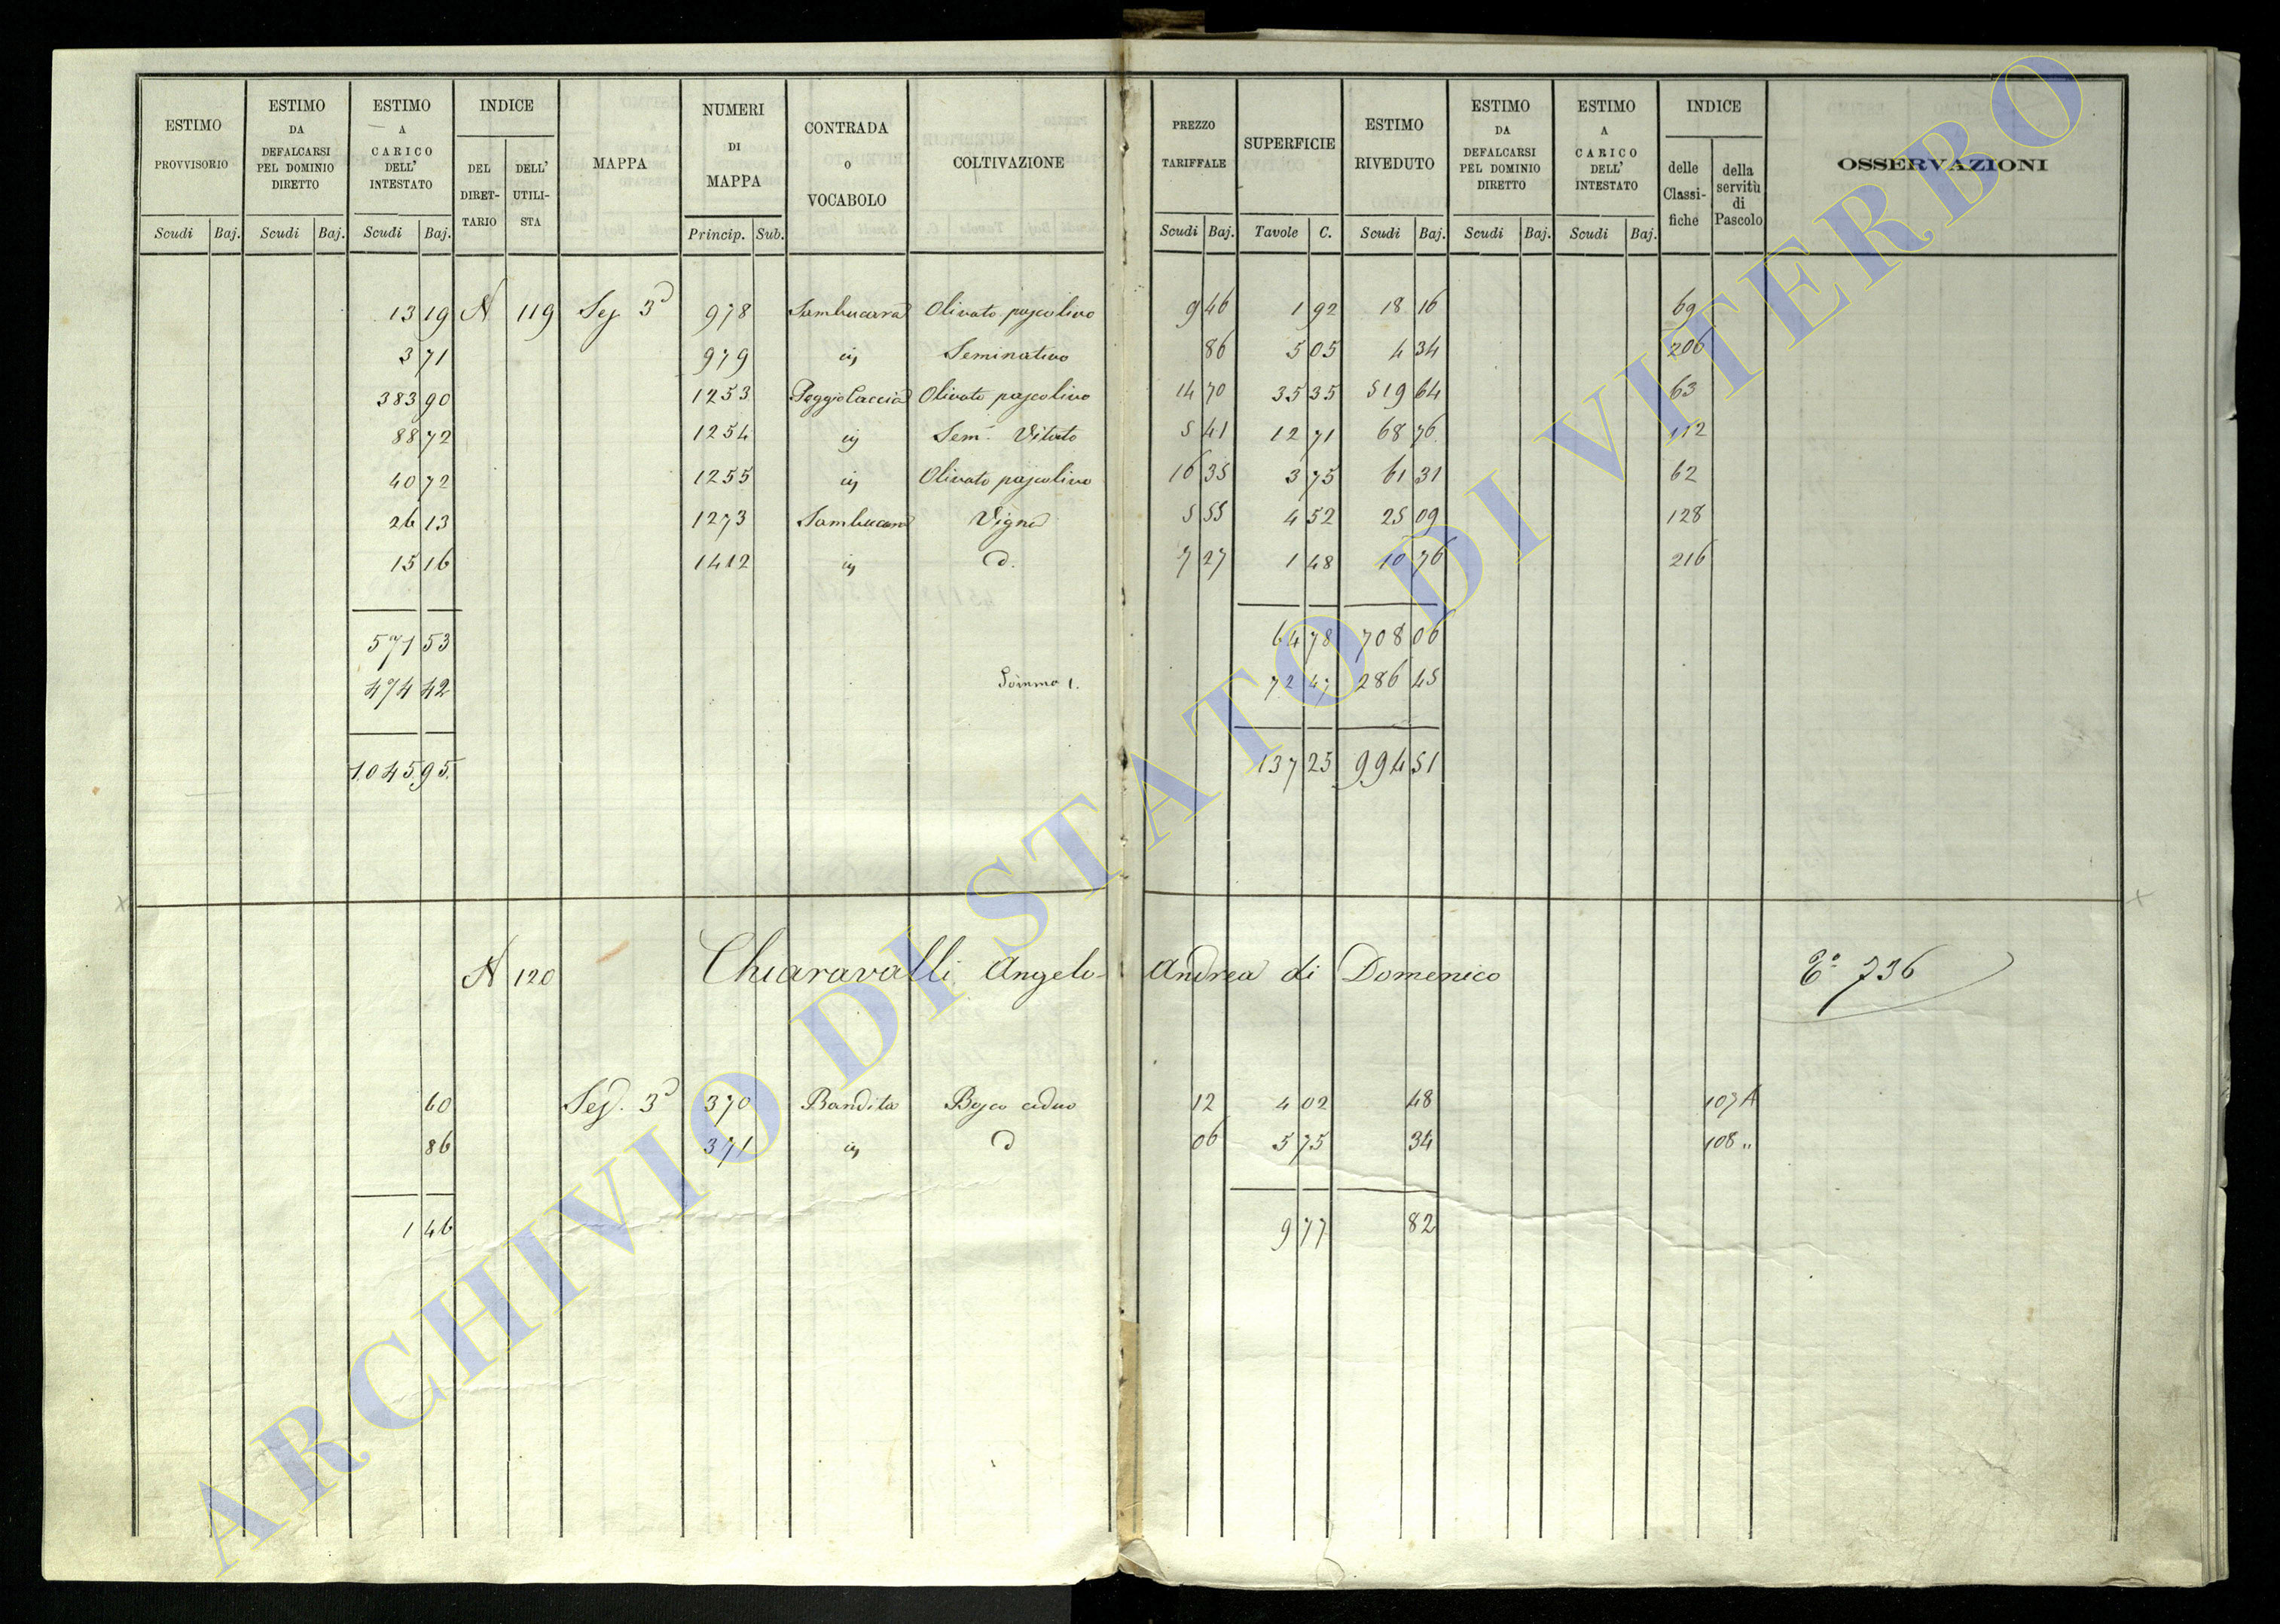 ESTIMO PROVVISORIO | ESTIMO DA DEFALCARSI PEL DOMINIO DIRETTO | ESTIMO A CARICO DELL' INTESTATO | INDICE DEL DIRETTARIO | DELL' UTILISTA | MAPPA | NUMERI DI MAPPA | CONTRADA o VOCABOLO | COLTIVAZIONE | PREZZO TARIFFALE | SUPERFICIE | ESTIMO RIVEDUTO | ESTIMO DA DEFALCARSI PEL DOMINIO DIRETTO | ESTIMO A CARICO DELL' INTESTATO | INDICE delle Classifiche | della servitù di Pascolo | OSSERVAZIONI
Scudi Baj. | Scudi Baj. | Scudi Baj. | Princip. Sub. | Scudi Baj. | Tavole C. | Scudi Baj. | Scudi Baj. | Scudi Baj.
13 19 N 119 Sez 3a 978 Sambucara Olivato pascolivo 9 46 1 92 18 16 69
3 71 979 in Seminativo 86 5 05 4 34 206
383 90 1253 Poggio Caccia Olivato pascolivo 14 70 35 35 519 64 63
88 72 1254 in Sem. Vitato 5 41 12 71 68 76 112
40 72 1255 in Olivato pascolivo 16 35 3 75 61 31 62
26 13 1273 Sambucara Vigna 5 55 4 52 25 09 128
15 16 1412 in d. 7 27 1 48 10 76 216
571 53 64 78 708 06
474 42 Somma 1. 72 47 286 45
1045 95 137 25 994 51
N 120 Chiaravalli Angelo Andrea di Domenico 736
60 Sez. 3a 370 Bandita Bosco ceduo 12 4 02 48 107 A
86 371 in d 06 5 75 34 108 "
1 46 9 77 82
ARCHIVIO DI STATO DI VITERBO